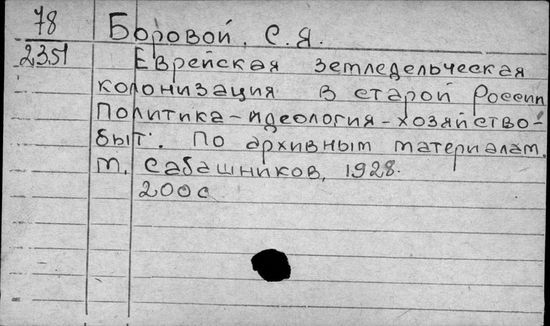 78
2351
Боровой, С.Я.
Еврейская земледельческая
колонизация в старой России
Политика-идеология-хозяйство-
быт. По архивным материалам.
М. Сабашников, 1928.
200 с